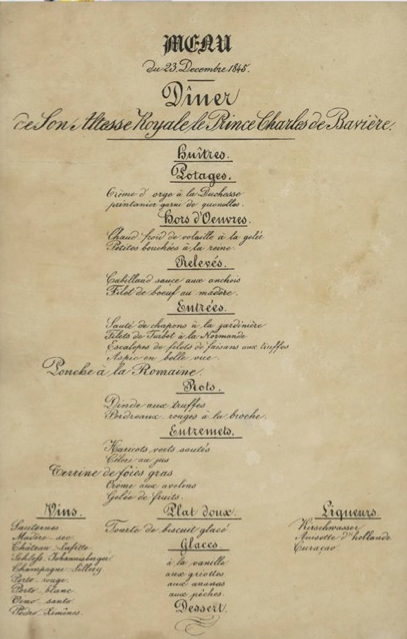 MENU
du 23 Decembre 1845.
Dîner
de Son Altesse Royale le Prince Charles de Bavière.
Huîtres.
Potages.
Crême d'orge à la Duchesse
printanier garni de quenelles
Hors d'Oeuvres.
Chaud froid de volaille à la gelée
Petites bouchées à la reine
Relevés.
Cabillaud sauce aux anchois
Filet de boeuf au madère
Entrées.
Sauté de chapons à la jardinière
Filets de Turbot à la Normande
Escalopes de filets de faisans aux truffes
Aspic en belle vue
Ponche à la Romaine.
Rots.
Dinde aux truffes
Bordreaux rouges à la broche
Entremets.
Haricots verts sautés
Céleri au jus
Terrine de foies gras
Creme aux avelins
Gelée de fruits
Vins.
Sauternes
Madère sec
Château lafitte
Schloss Johannisberger
Champagne Sillery
Porto rouge
Porto blanc
Vino santo
Pedro Ximénes
Plat doux.
Tourte de biscuit glacé
Glaces.
à la vanille
aux griottes
aux ananas
aux pêches
Dessert.
Liqueurs.
Kirschwasser
Anisette d'hollande
Curaçao